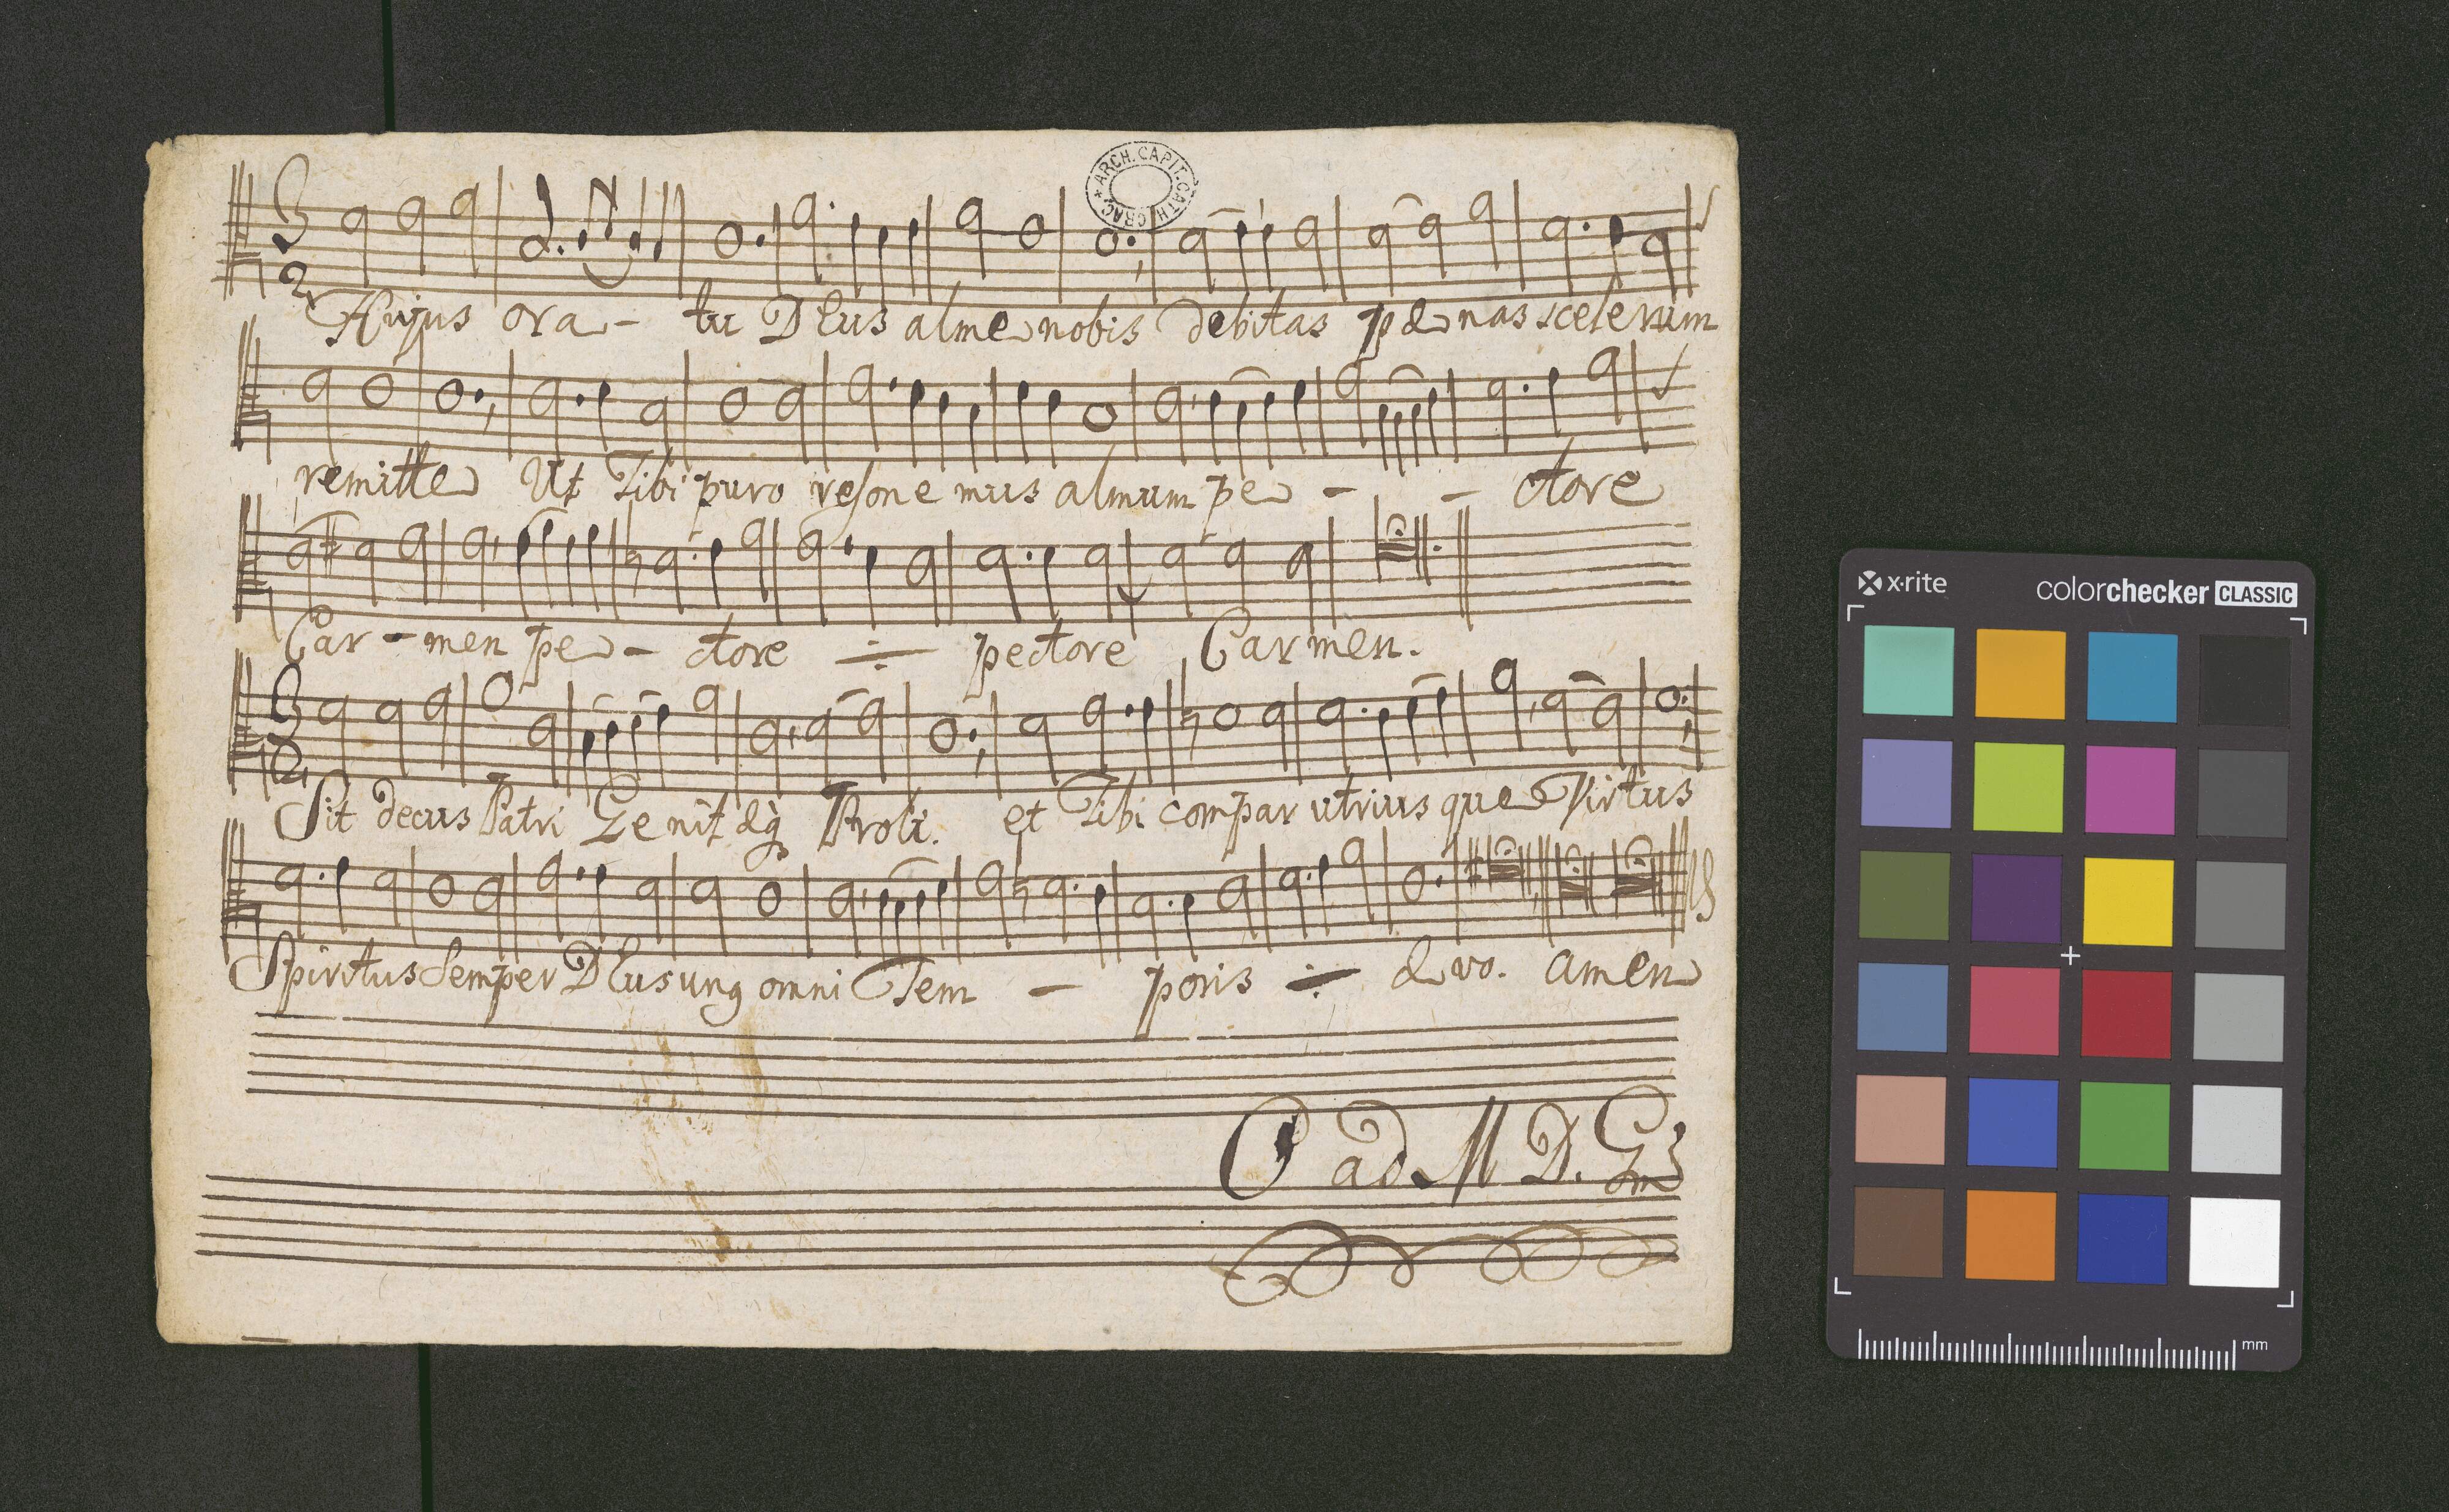 ARCH. CAPIT. CATH. GRAC.
3
2
Hujus ora - tu DEus alme nobis debitas pænas scelerum
remitte Ut Tibi puro resone mus almum pe - - ctore
Car - men pe - ctore ÷ pectore Carmen.
3
2
Sit decus Patri Genit æq̃ Proli. et Tibi compar utrius que Virtus
Spiritus Semper DEus unq omni Tem - poris ÷ ævo. amen
O ad M D. G
x-rite
colorchecker CLASSIC
mm